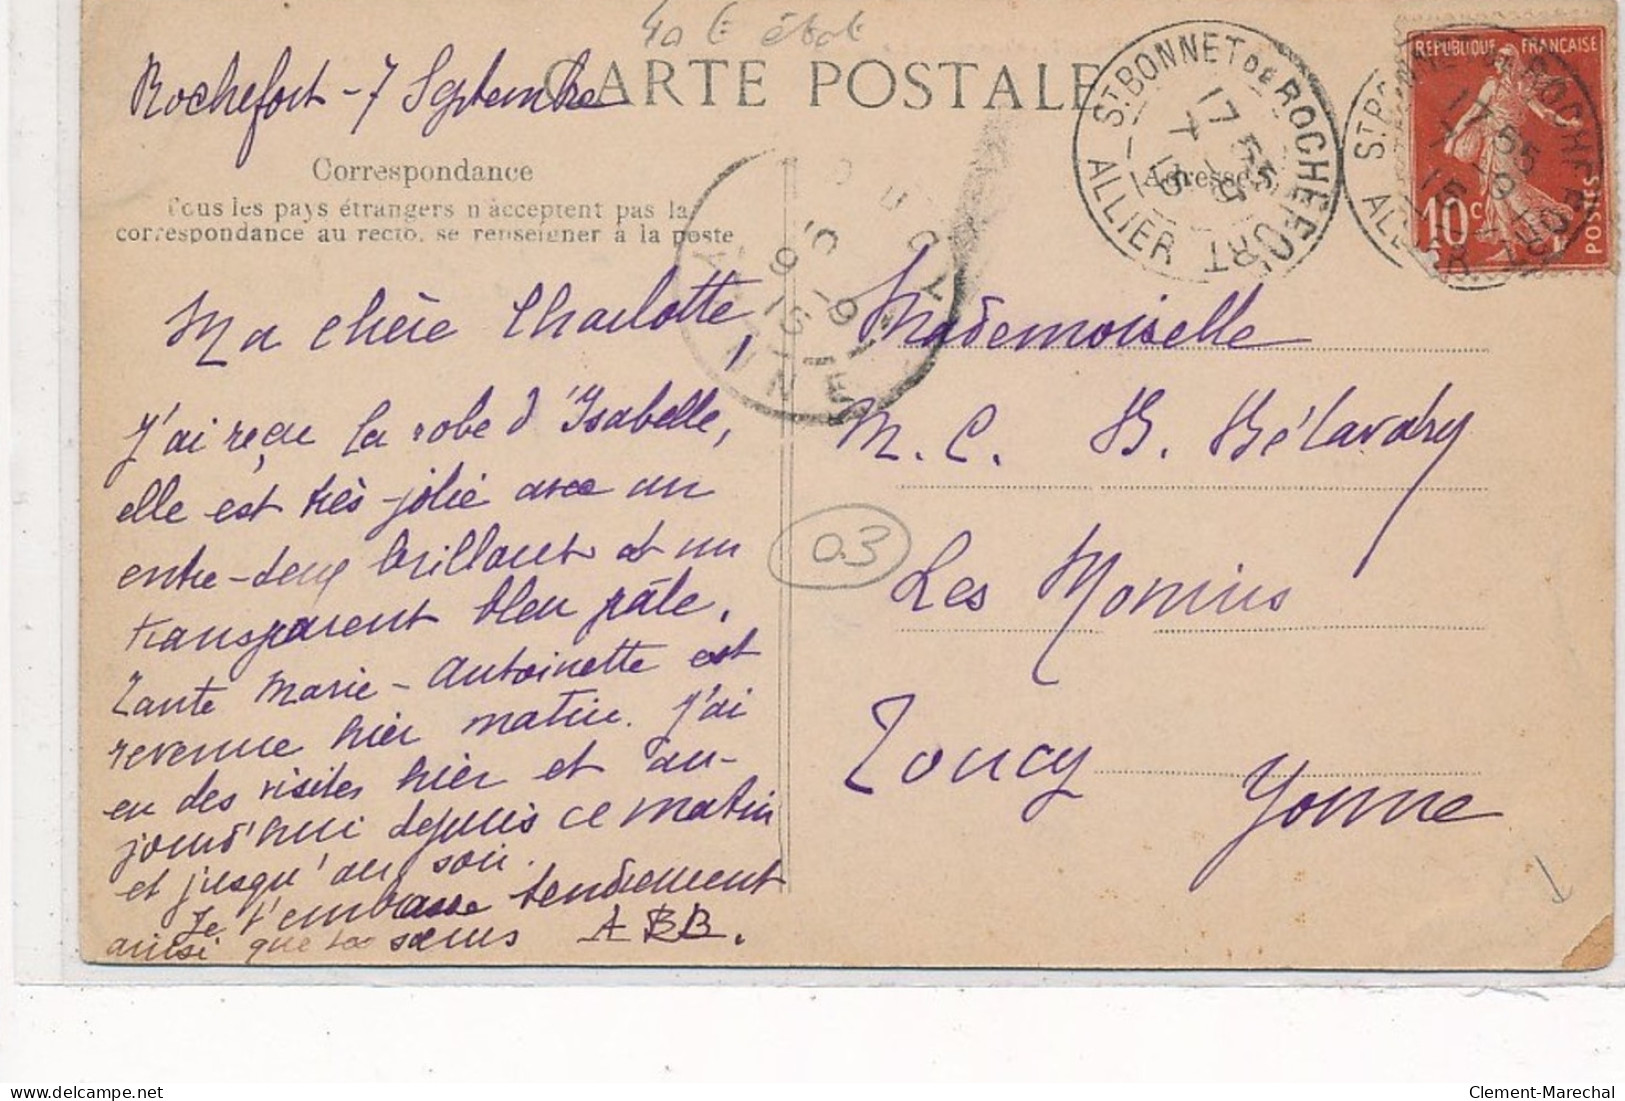 Rochefort - 7 Septembre
CARTE POSTALE
Correspondance
Tous les pays étrangers n'acceptent pas la
correspondance au recto, se renseigner à la poste
Ma chère Charlotte,
J'ai reçu la robe d'Isabelle,
elle est très jolie avec un
entre-deux brillant et un
transparent bleu pâle.
Tante Marie-Antoinette est
revenue hier matin. J'ai
eu des visites hier et au-
jourd'hui depuis ce matin
et jusqu'au soir.
Je t'embrasse tendrement
ainsi que tes sœurs ABB.
Adresse
Mademoiselle
M. C. B. Bélavdry
Les Momins
Toucy
Yonne
03
ST BONNET DE ROCHEFORT
17 55
7 - 9
15
ALLIER
ST BONNET DE ROCHEFORT
17 55
7 - 9
15
ALLIER
RÉPUBLIQUE FRANÇAISE
10c
POSTES
TOUCY
9 - 9
15
YONNE
Clement-Marechal